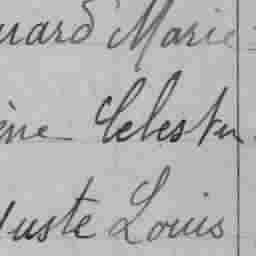 uard Marie
ène Celestin
uste Louis